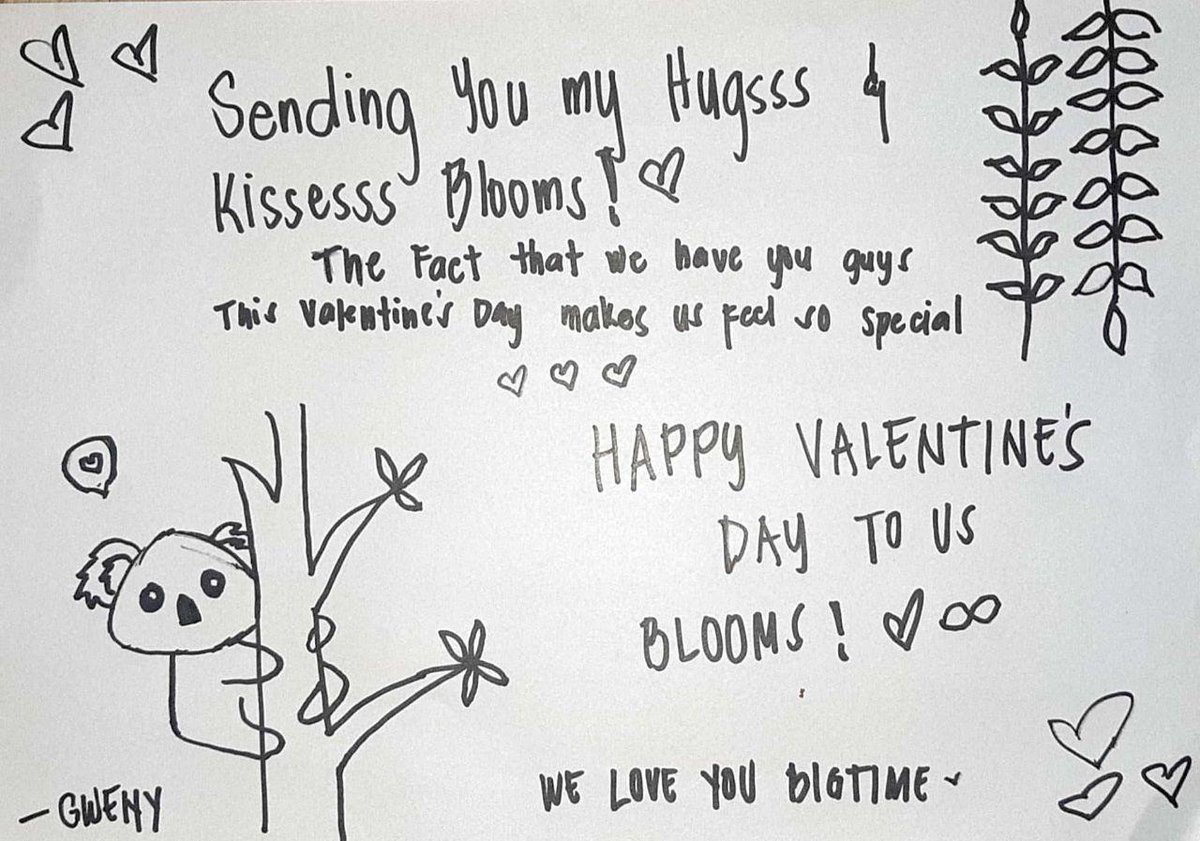 Sending You my Hugsss &
Kissesss Blooms!
The Fact that we have you guys
This Valentine's Day makes us feel so special
HAPPY VALENTINE'S
DAY TO US
BLOOMS! ∞
WE LOVE YOU BIGTIME ~
- GWENY